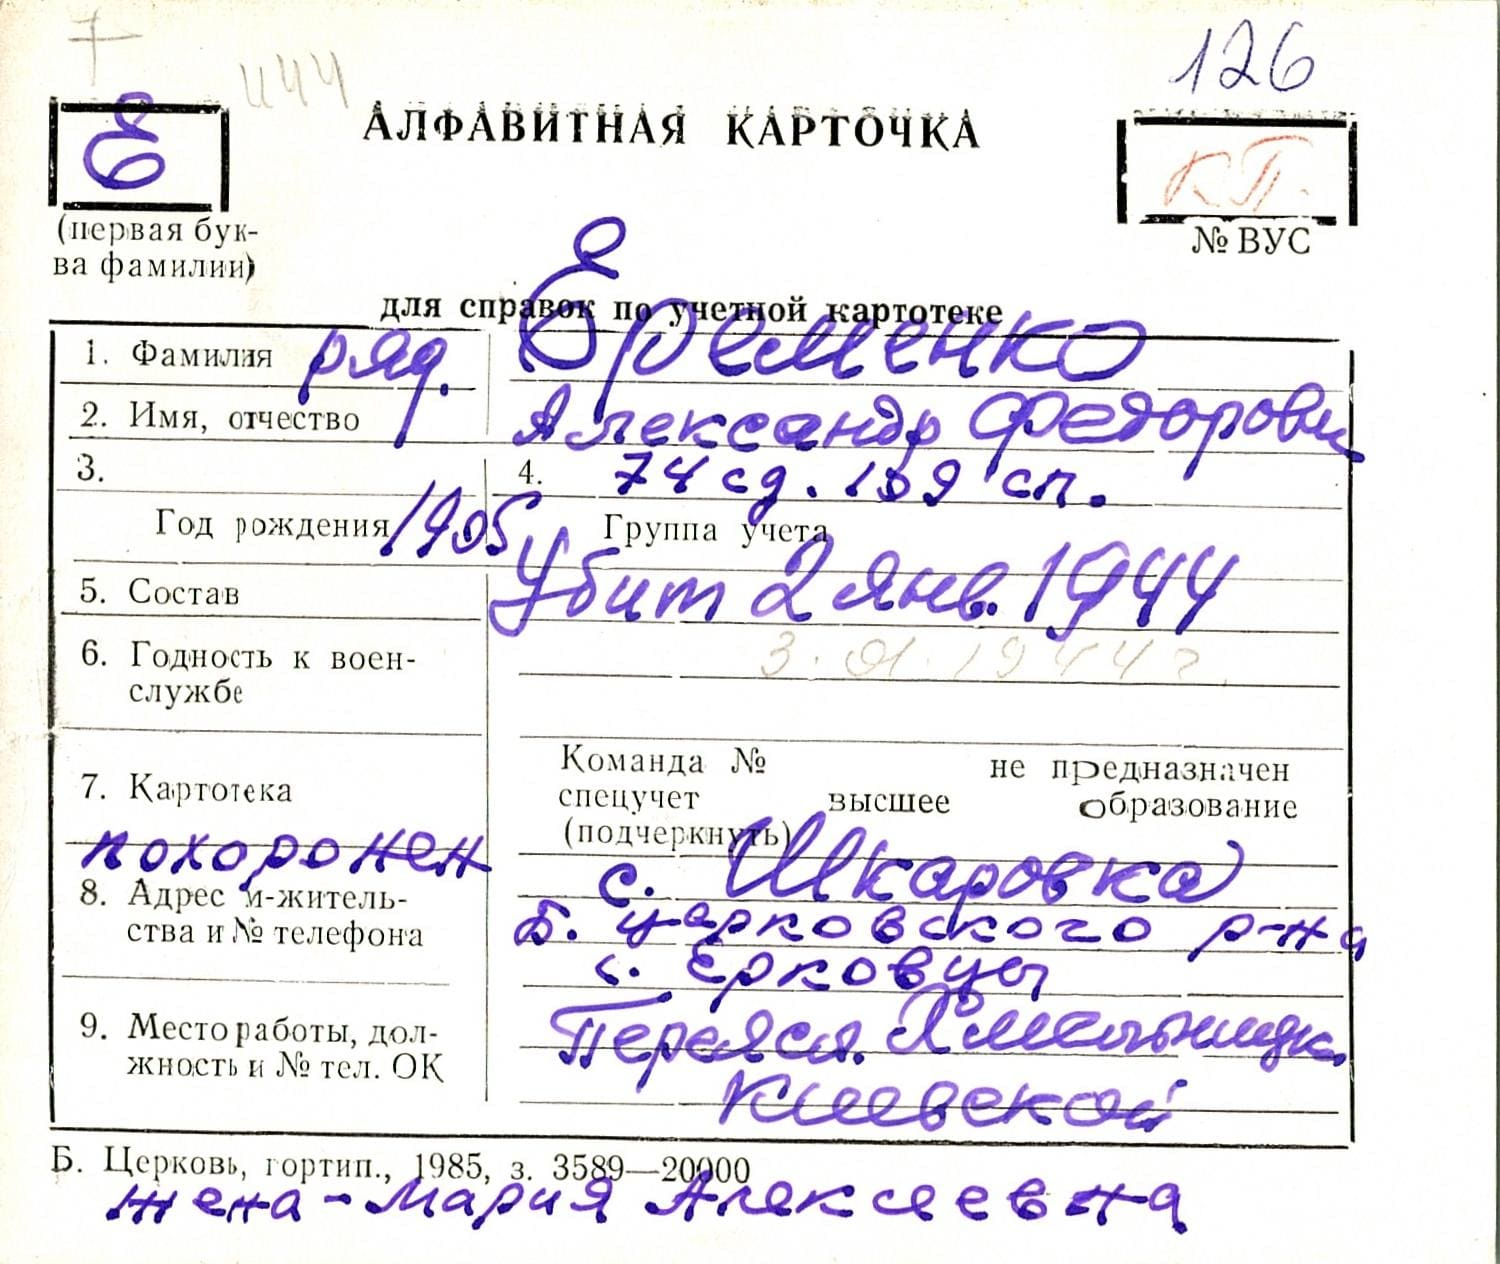 126
АЛФАВИТНАЯ КАРТОЧКА
Е
КП.
(первая бук-
ва фамилии)
№ ВУС
для справок по учетной картотеке
1. Фамилия ряд. Еременко
2. Имя, отчество Александр Федорович
3. 4. 74 сд. 109 сп.
Год рождения 1905 Группа учета
5. Состав Убит 2 янв. 1944
6. Годность к воен-
службе
3.01.1944 г.
7. Картотека
Команда № не предназначен
спецучет высшее образование
(подчеркнуть)
похоронен с. Шкаровка
8. Адрес м-житель-
ства и № телефона
Б. Церковского р-на
с. Ерковцы
9. Место работы, дол-
жность и № тел. ОК
Переясл. Хмельницк.
Киевской
Б. Церковь, гортип., 1985, з. 3589—20000
жена - Мария Алексеевна